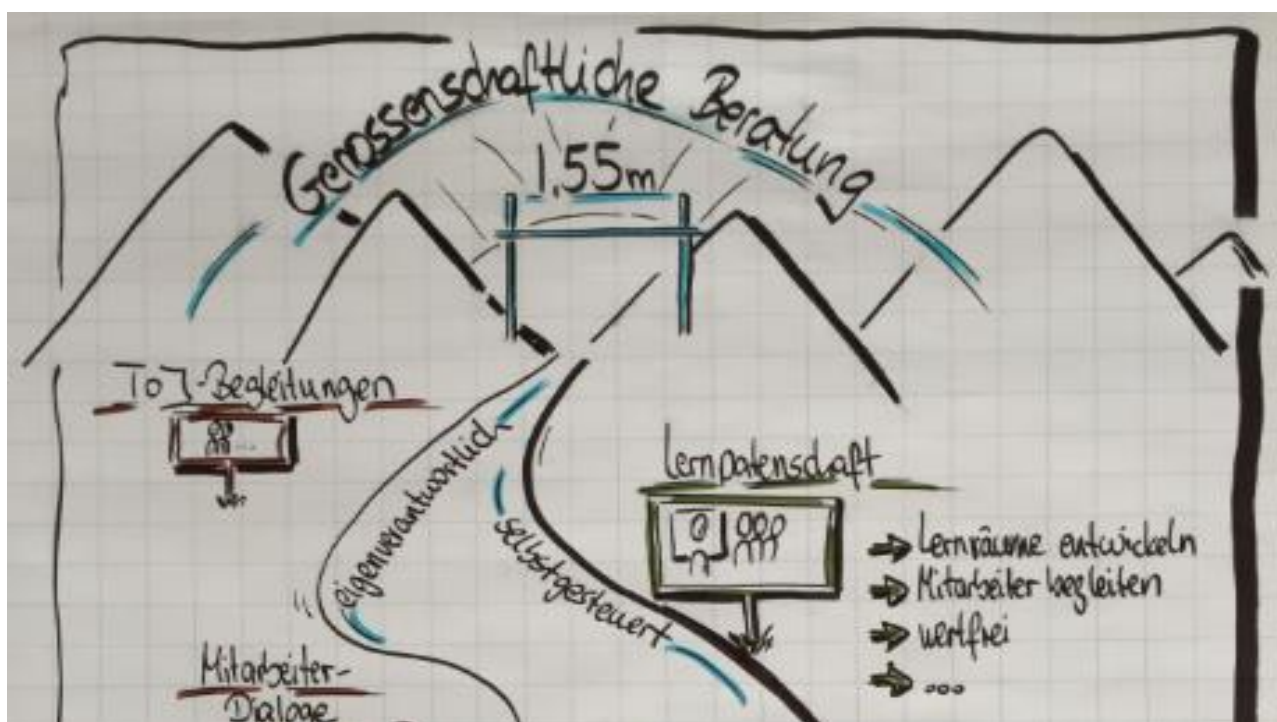 Genossenschaftliche Beratung
1,55m
ToJ-Begleitungen
eigenverantwortlich
selbstgesteuert
Lernpatenschaft
Lernräume entwickeln
Mitarbeiter begleiten
wertfrei
...
Mitarbeiter-
Dialoge